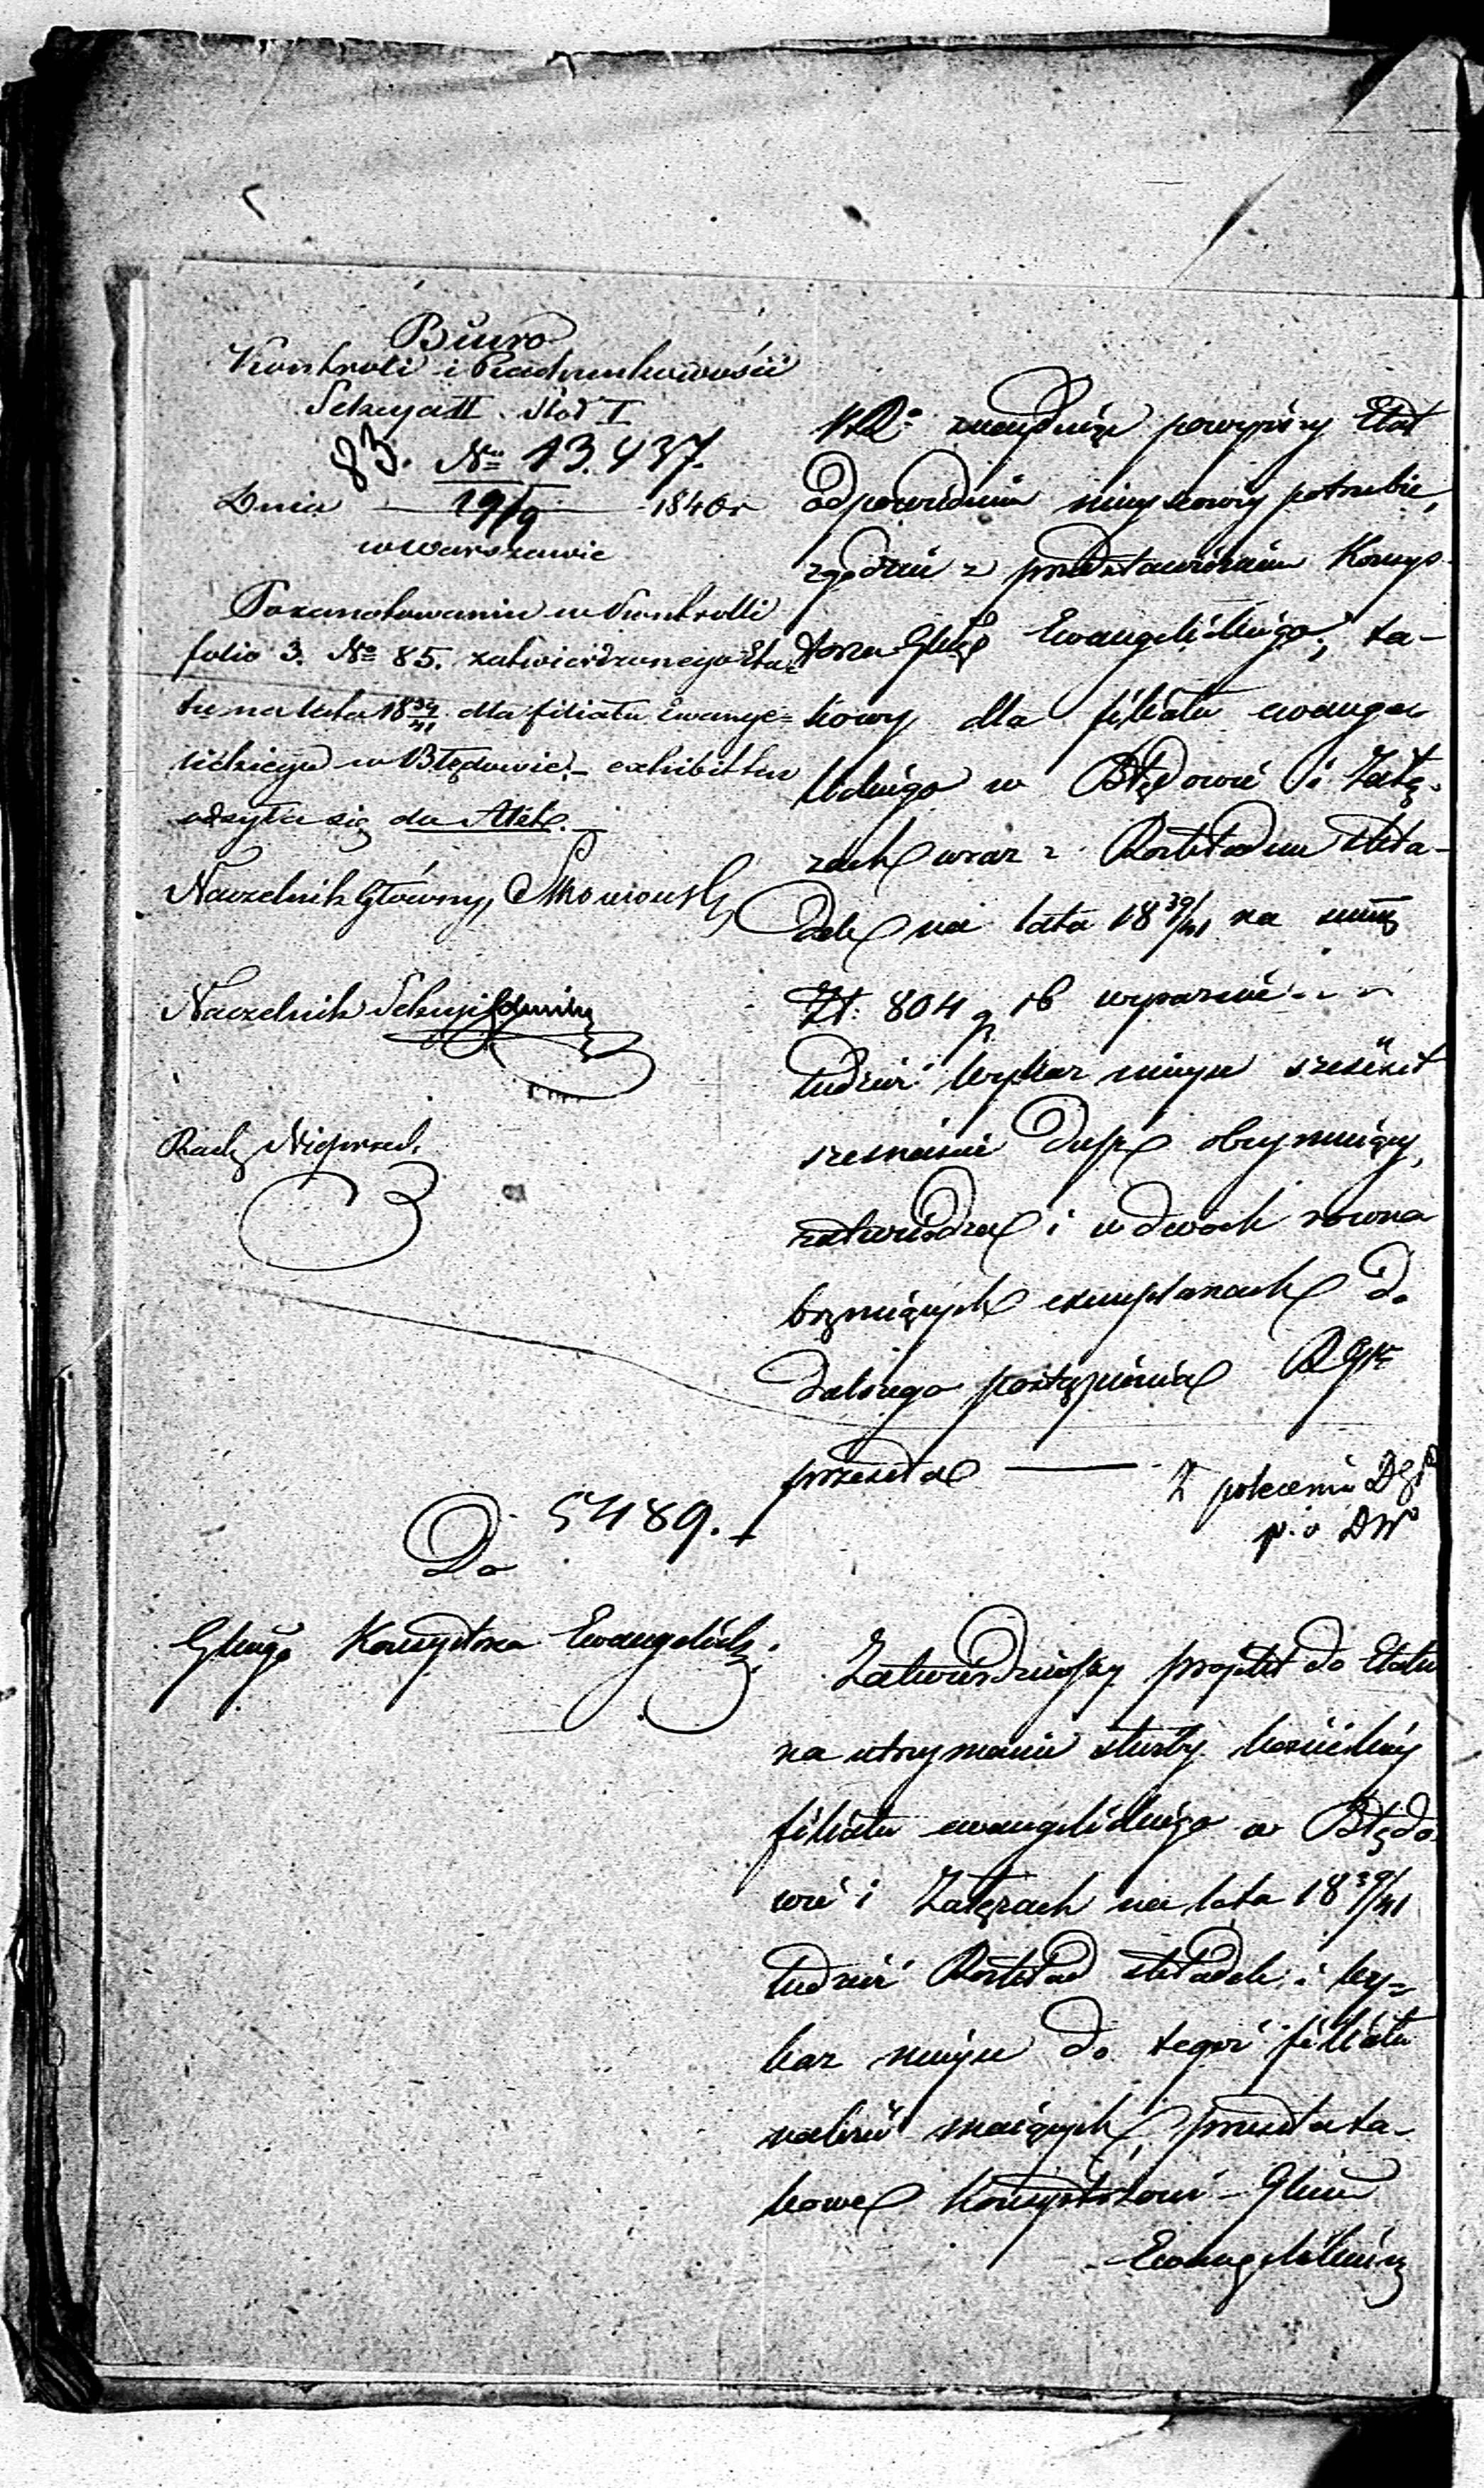 Biuro
Kontroli i Rachunkowości
Sekcya II Stół I
83. No 13.437.
Dnia 19/9 1840 r
w Warszawie
Po zanotowaniu w Kontrolli
folio 3. No 85. zatwierdzonego Eta=
tu na lata 18 39/41 dla filiału Ewange=
lickiego w Błędowie, exhibit ten
odsyła się do Akt.
Naczelnik Główny
Naczelnik Sekcyi
Do 5489.
Głwgo Konsystorza Ewangelick:
K.R. znajdując powyższy Etat
odpowiednim miejscowej potrzebie,
zgodnie z przedstawieniem Konsys-
torza Głgo Ewangelickiego, ta-
kowy dla filiału ewange
lickiego w Błędowie i Załę-
zach wraz z Rozkładem skła-
dek na lata 18 39/41 na summę
Zł: 804 g 16 wyraźnie
tudzież wykaz miejsc sześćset
szesnaście dusz obejmujący,
zatwierdza i w dwóch równo
brzmiących exemplarzach do
dalszego postąpienia RGpr
przesyła
Z polecenia DGł
p. o DWo
Zatwierdziwszy projekt do Etatu
na utrzymanie służby kościelnej
filiału ewangelickiego w Błędo
wie i Załęzach na lata 18 39/41
tudzież Rozkład składek i wy=
kaz miejsc do tegoż filiału
należeć mających, przesyła ta-
kowe Konsystorzowi Głwmu
Ewangelickiemu